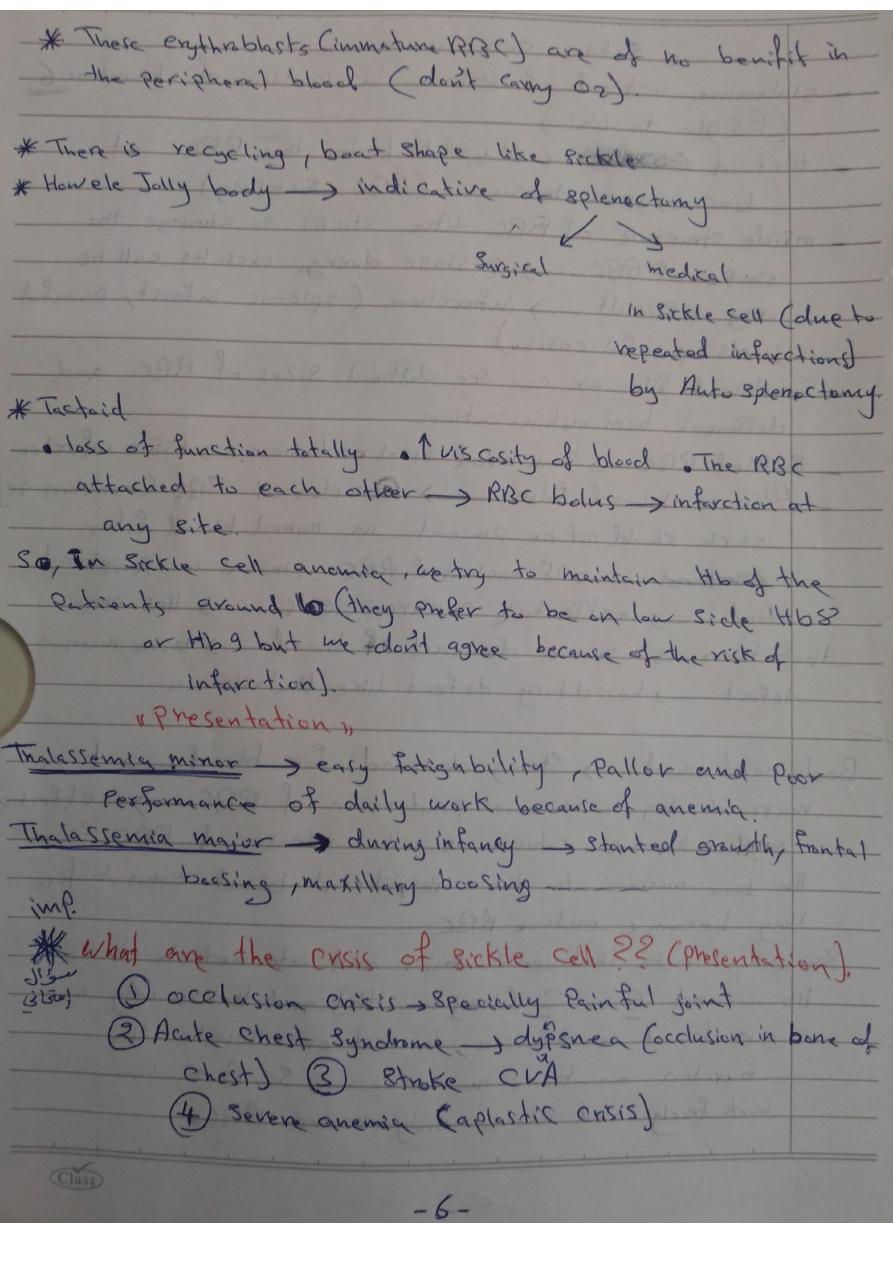 * These erythroblasts (immature RBC) are of no benifit in
the peripheral blood (don't carry O2).
* There is recycling, boat shape like sickle
* Howele Jolly body → indicative of splenectomy
Surgical medical
in sickle cell (due to
repeated infarctions)
by Autosplenectomy.
* Tactoid
• loss of function totally • ↑ viscosity of blood • The RBC
attached to each other → RBC bolus → infarction at
any site.
So, In sickle cell anemia, we try to maintain Hb of the
patients around (they prefer to be on low side Hb8
or Hb9 but we don't agree because of the risk of
infarction).
"Presentation"
Thalassemia minor → easy fatigability, Pallor and poor
performance of daily work because of anemia.
Thalassemia major → during infancy → stanted growth, frontal
bossing, maxillary boosing
imp.
* What are the crisis of sickle cell ?? (presentation).
سؤال
امتحان
① occlusion crisis → specially Painful joint
② Acute chest syndrome → dypsnea (occlusion in bone of
chest) ③ stroke CVA
④ severe anemia (aplastic crisis)
Class
-6-